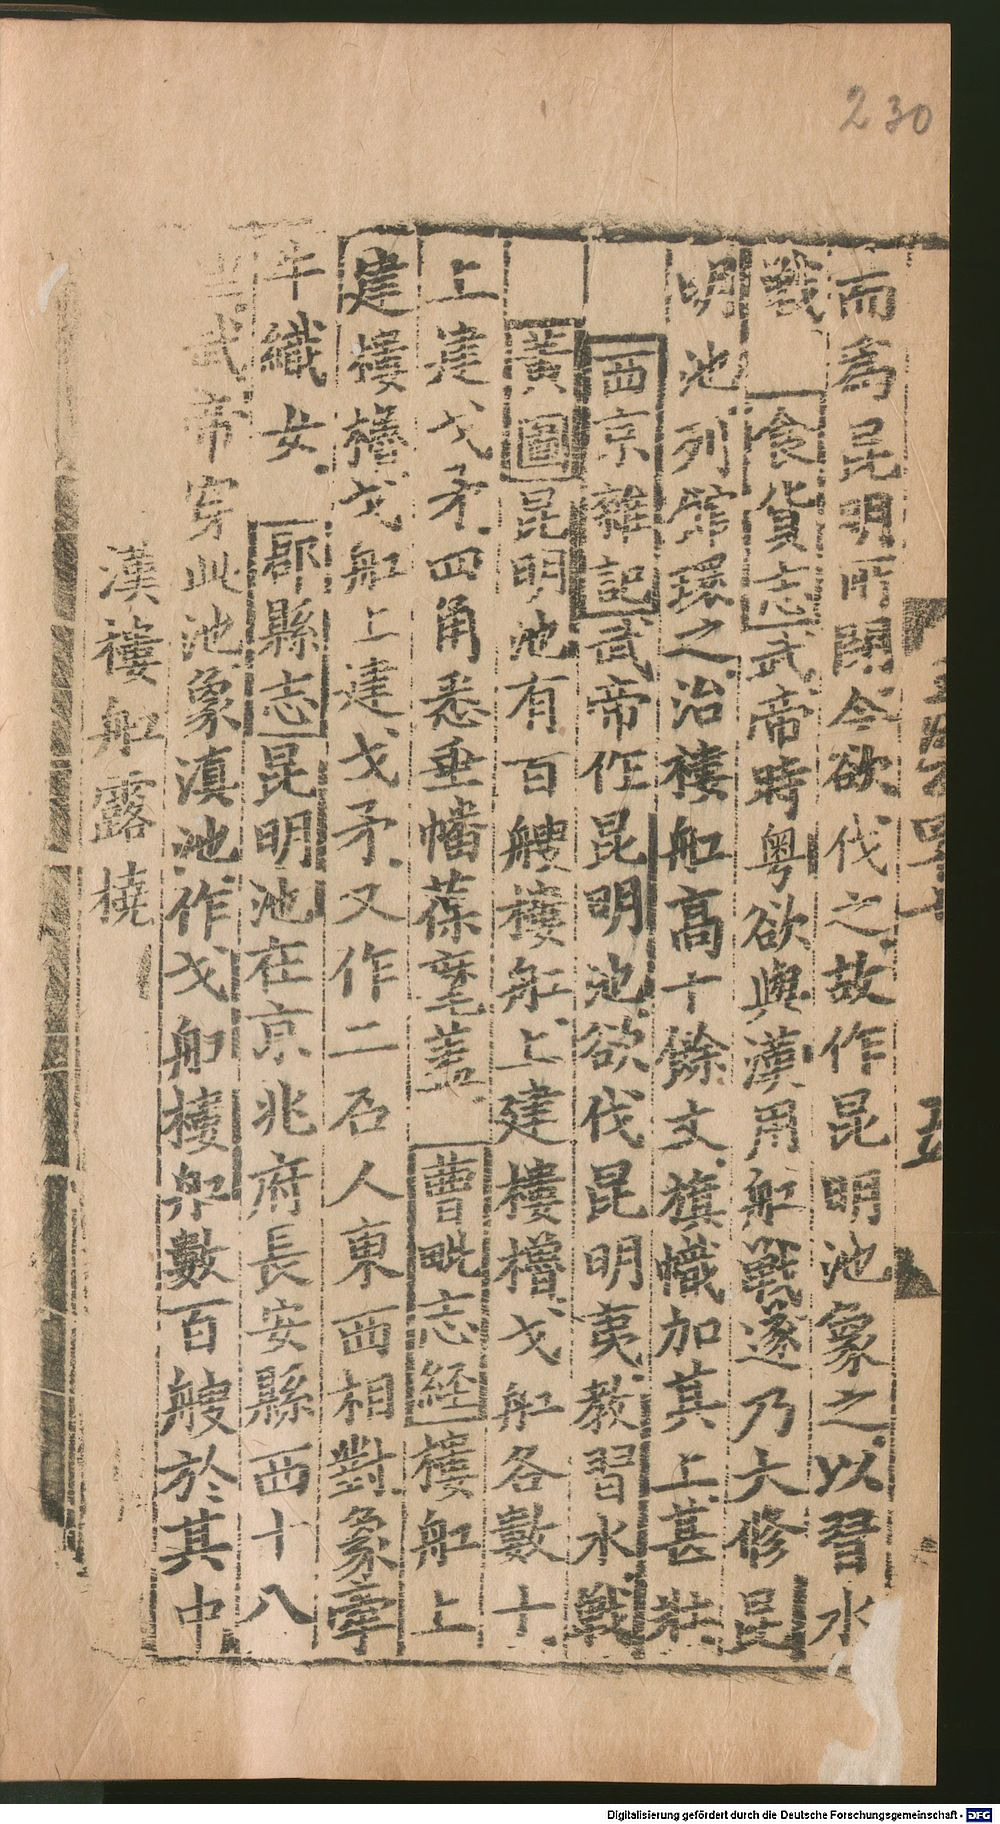 230
而為昆明所閉今欲伐之故作昆明池象之以習水
戰 食貨志武帝時粤欲與漢用舡戰遂乃大修昆
明池列舘環之治樓舡高十餘丈旗幟加其上甚壯
西京雜記武帝作昆明池欲伐昆明夷教習水戰
黃圖昆明池有百艘樓舡上建樓櫓戈舡各數十
上建戈矛四角悉垂幡葆麾蓋 曹毗志経樓舡上
建樓櫓戈舡上建戈矛又作二石人東西相對象牽
牛織女 郡縣志昆明池在京兆府長安縣西十八
里武帝穿此池象滇池作戈船樓船數百艘於其中
漢樓舡露橈
Digitalisierung gefördert durch die Deutsche Forschungsgemeinschaft - DFG